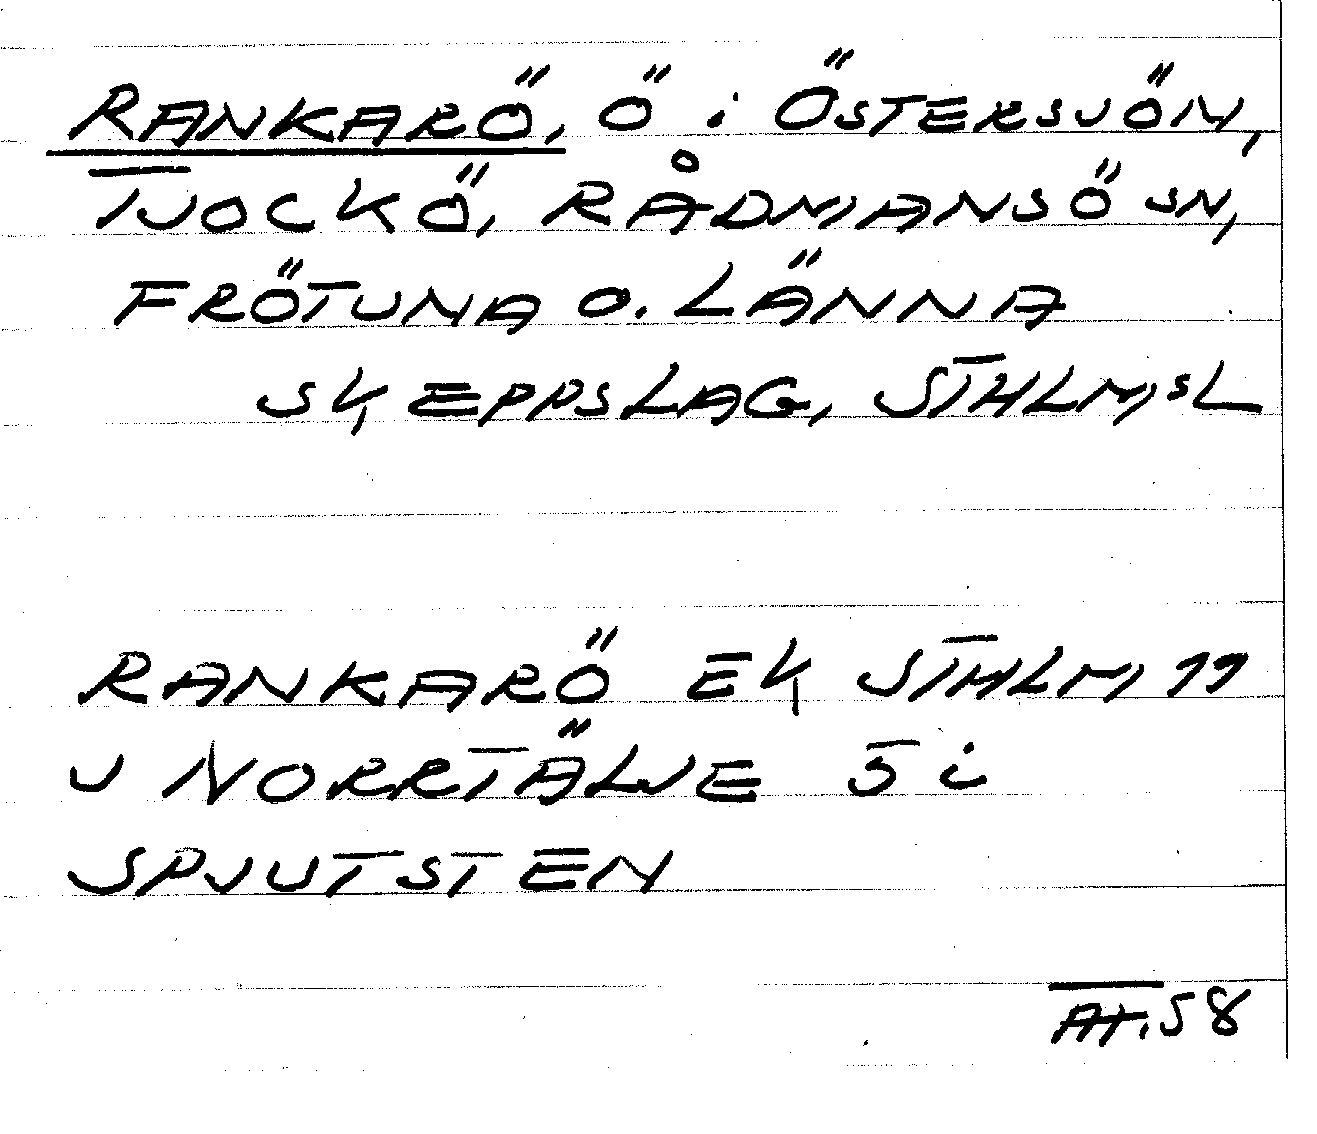 RANKARÖ, Ö i ÖSTERSJÖN,
TJOCKÖ, RÅDMANSÖ SN,
FRÖTUNA O. LÄNNA
SKEPPSLAG, STHLMSL
RANKARÖ EK STHLM 11
U NORRTÄLJE 5 i
SPJUTSTEN
58